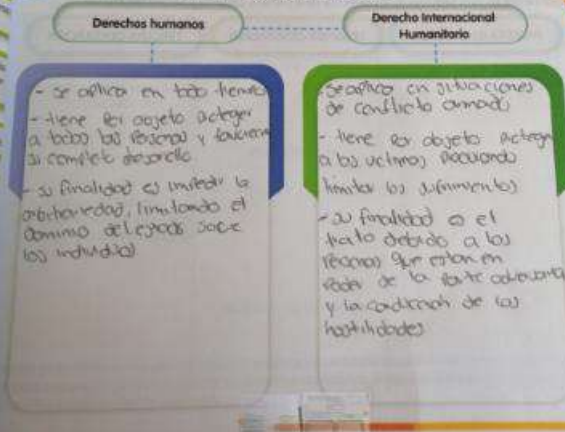 Derechos humanos
- se aplica en todo tiempo
- tiene por objeto proteger
a todos las personas y favorecer
su completo desarrollo
- su finalidad es impedir la
arbitrariedad, limitando el
dominio del estado sobre
los individuos
Derecho Internacional
Humanitario
se aplica en situaciones
de conflicto armado
- tiene por objeto proteger
a las victimas procurando
limitar los sufrimientos
- su finalidad es el
trato debido a las
personas que estan en
poder de la parte adversaria
y la conduccion de las
hostilidades